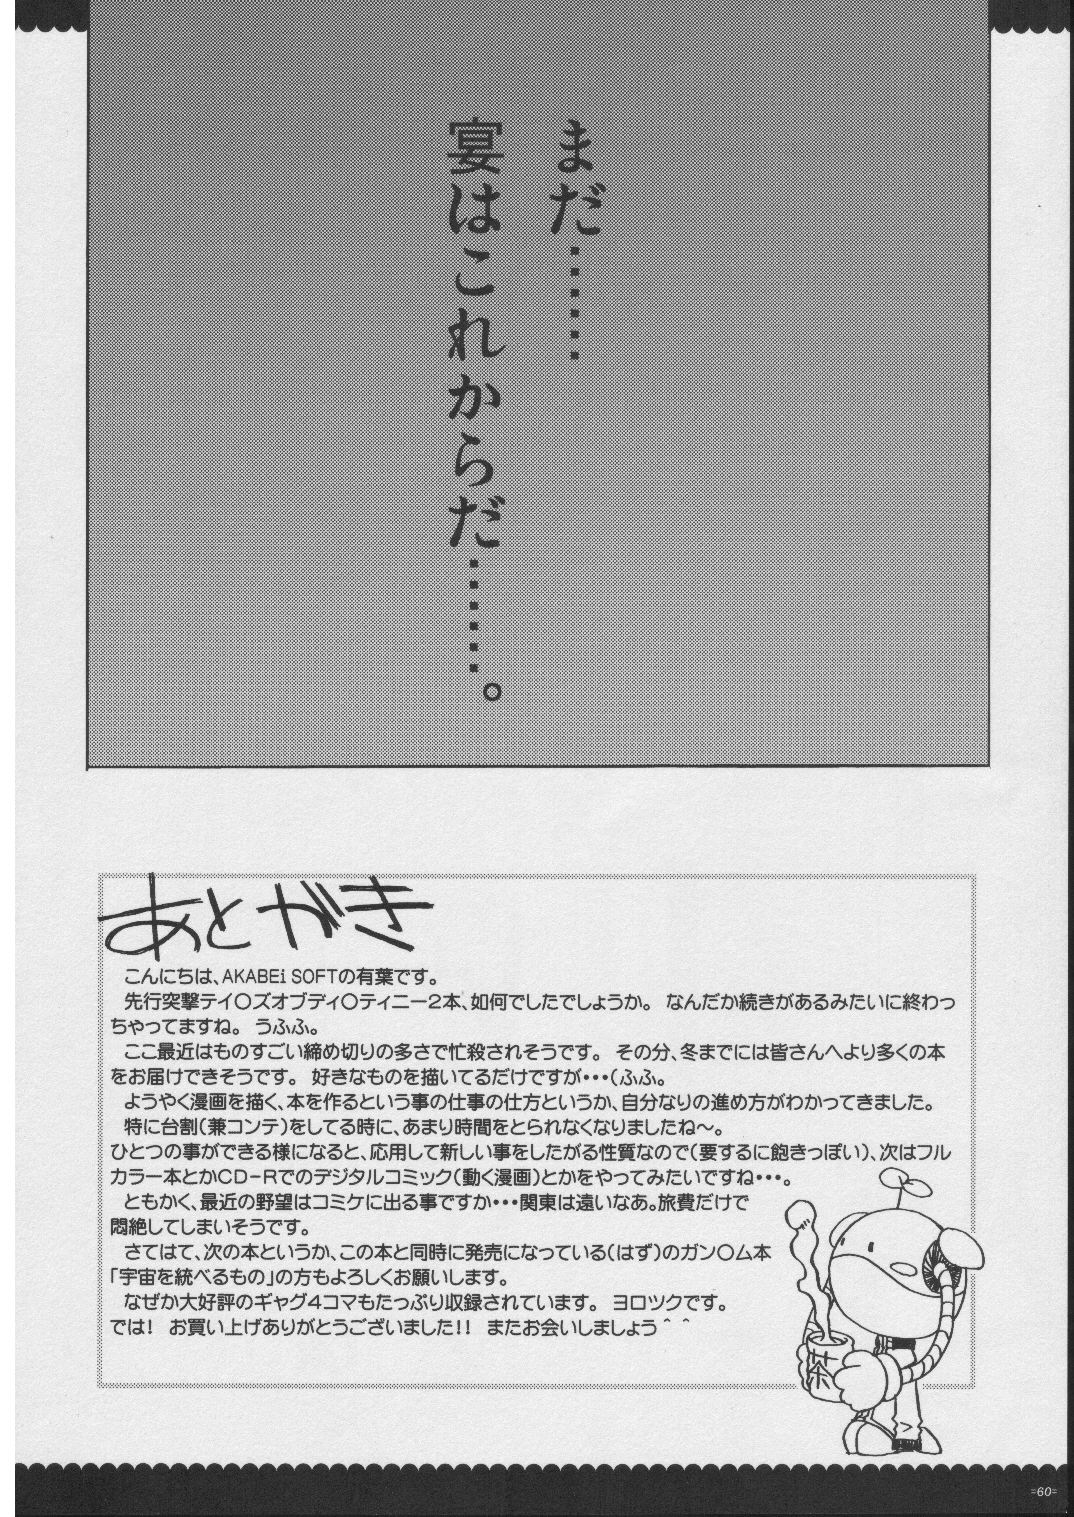 まだ……
宴はこれからだ……。
あとがき
こんにちは、AKABEi SOFTの有葉です。
先行突撃テイ〇ズオブディ〇ティニー2本、如何でしたでしょうか。 なんだか続きがあるみたいに終わっ
ちゃってますね。 うふふ。
ここ最近はものすごい締め切りの多さで忙殺されそうです。 その分、冬までには皆さんへより多くの本
をお届けできそうです。 好きなものを描いてるだけですが・・・(ふふ。
ようやく漫画を描く、本を作るという事の仕事の仕方というか、自分なりの進め方がわかってきました。
特に台割(兼コンテ)をしてる時に、あまり時間をとられなくなりましたね〜。
ひとつの事ができる様になると、応用して新しい事をしたがる性質なので(要するに飽きっぽい)、次はフル
カラー本とかCD-Rでのデジタルコミック(動く漫画)とかをやってみたいですね・・・。
ともかく、最近の野望はコミケに出る事ですか・・・関東は遠いなあ。旅費だけで
悶絶してしまいそうです。
さてはて、次の本というか、この本と同時に発売になっている(はず)のガン〇ム本
「宇宙を統べるもの」の方もよろしくお願いします。
なぜか大好評のギャグ4コマもたっぷり収録されています。 ヨロツクです。
では! お買い上げありがとうございました!! またお会いしましょう＾＾
茶
=60=